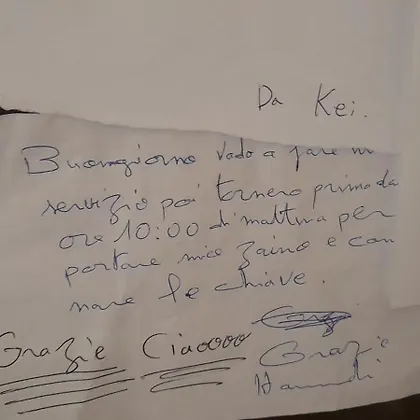 Da Kei.
Buongiorno vado a fare un
servizio poi tornero prima da
ore 10:00 di mattina per
portare mio zaino e con
nare le chiave.
Grazie Ciaoooo
Grazie